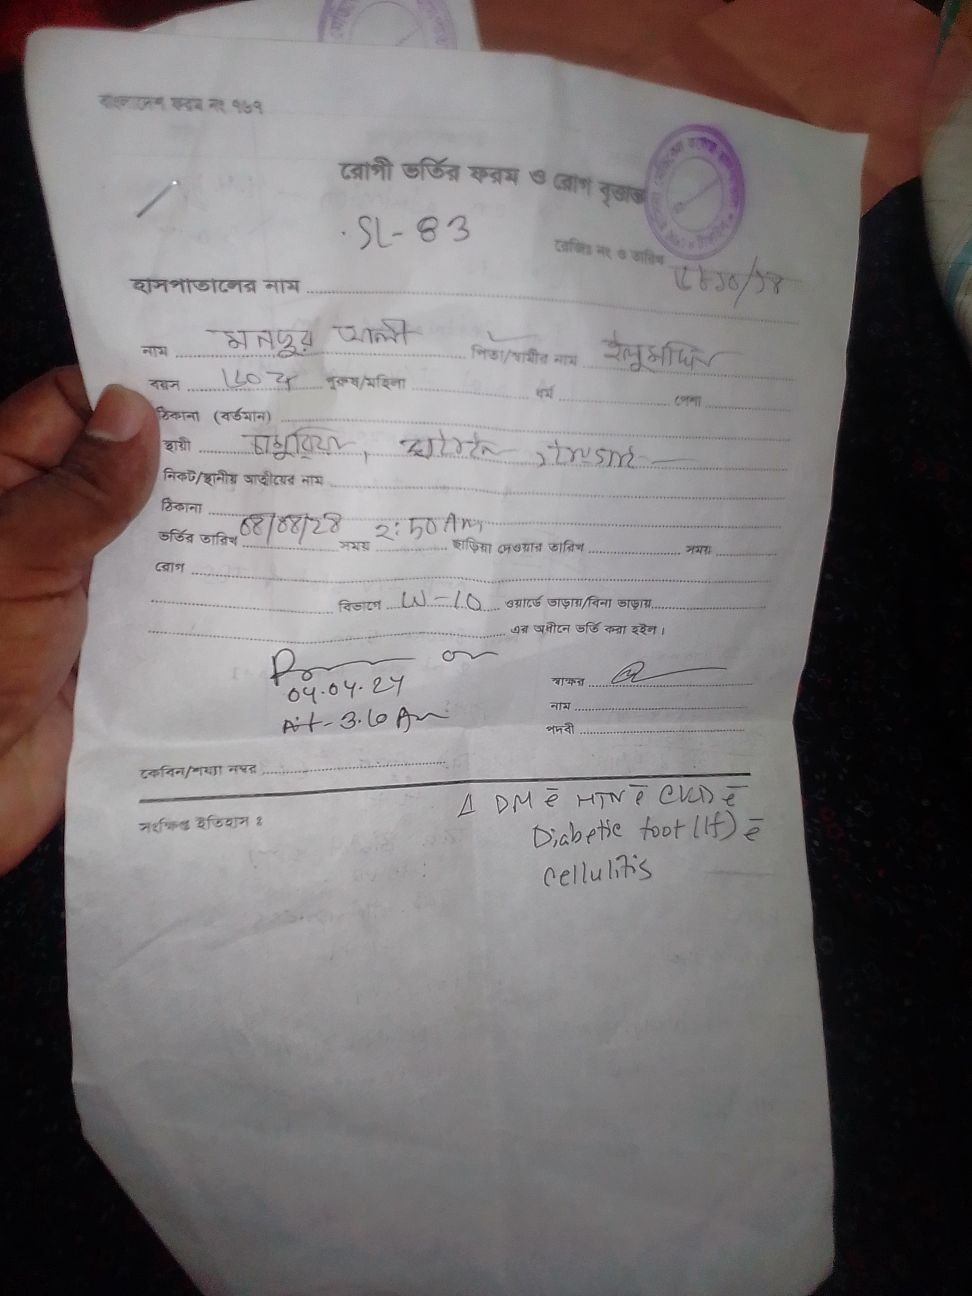 বাংলাদেশ ফরম নং ৭৬৭
রোগী ভর্তির ফরম ও রোগ বৃত্তান্ত
SL- 83
রেজিঃ নং ও তারিখ
হাসপাতালের নাম
নাম মনছুর আলী পিতা/স্বামীর নাম
বয়স পুরুষ/মহিলা ধর্ম পেশা
ঠিকানা (বর্তমান)
স্থায়ী
নিকট/স্থানীয় আত্মীয়ের নাম
ঠিকানা
ভর্তির তারিখ ০৪/০৪/২৪ সময় ২:৫০ Am ছাড়িয়া দেওয়ার তারিখ সময়
রোগ
বিভাগে W-10 ওয়ার্ডে ভাড়ায়/বিনা ভাড়ায়
এর অধীনে ভর্তি করা হইল।
04.04.24
At- 3.10 Am
স্বাক্ষর
নাম
পদবী
কেবিন/শয্যা নম্বর
সংক্ষিপ্ত ইতিহাস ঃ
Δ DM c̄ HTN c̄ CKD c̄
Diabetic foot (lt) c̄
cellulitis